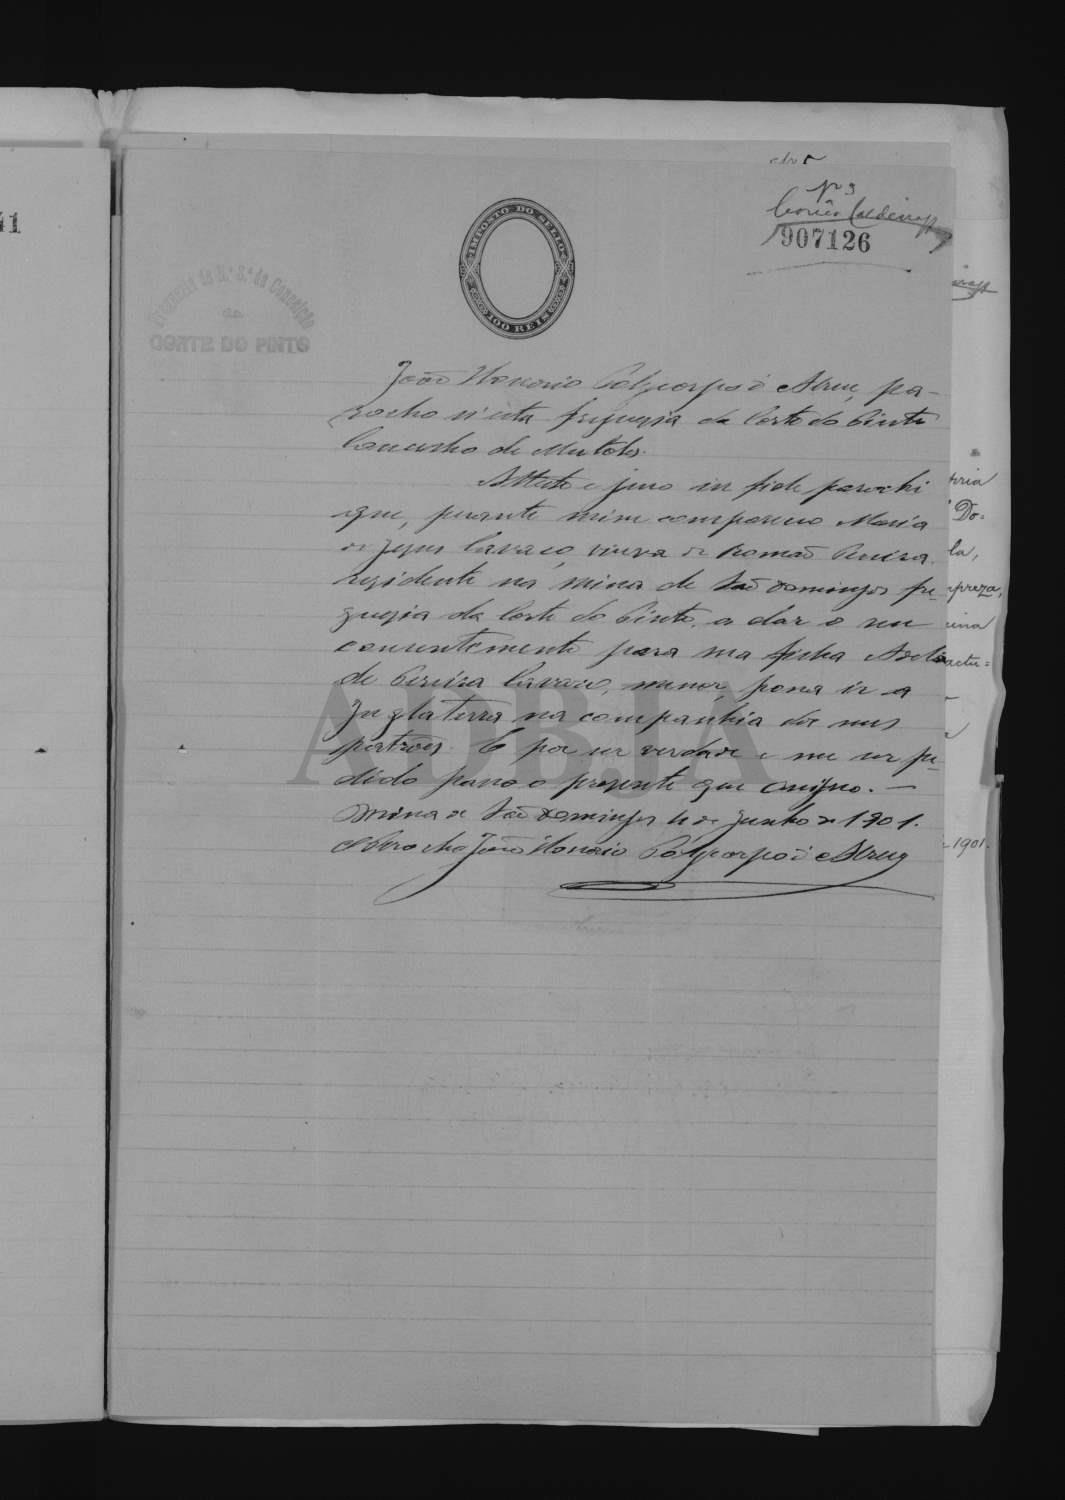 41
Nº 3
Corrêa Caldeira
907126
IMPOSTO DO SELLO
100 REIS
Freguezia de N.ª S.ª da Conceição
da
CORTE DO PINTO
João Honorio Polycarpo d'Abreu, pa-
rocho n'esta freguezia da Corte do Pinto
Concelho de Mertola.
Attesto e juro in fide parochi
que, perante mim compareceu Maria
de Jesus Cavaco, viuva de Romão Pereira
residente na mina de São Domingos fre-
guezia da Corte do Pinto, a dar o seu
consentimento para sua filha
de Pereira Cavaco, menor, para ir a
Inglaterra na companhia dos seus
patrões. E por ser verdade e me ser pe-
dido passo o presente que assigno. —
Mina de São Domingos 4 de Junho de 1901.
O Parocho João Honorio Polycarpo d'Abreu
ADBJA
Do-
la,
preza,
1901.